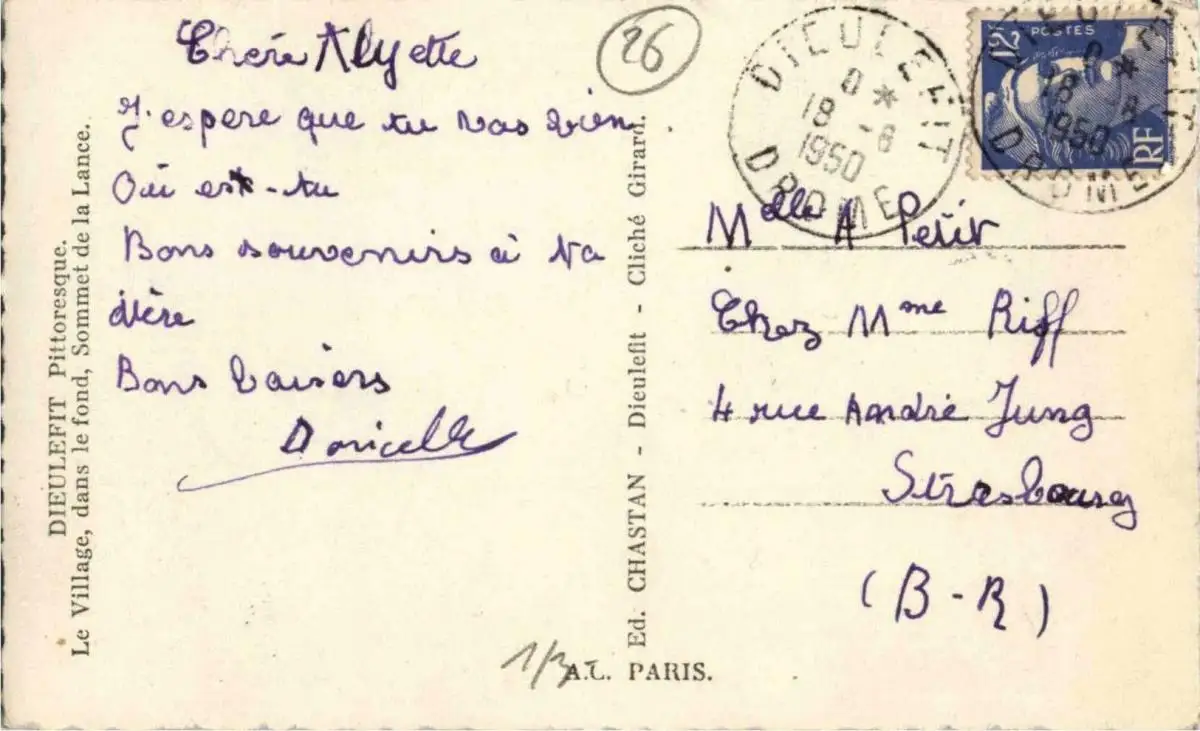 Chère Alyette
J'espere que tu vas bien
Où es-tu
Bons souvenirs à ta
Mère
Bons baisers
26
DIEULEFIT
18 -8
1950
DROME
12F
POSTES
RF
DIEULEFIT
18 -8
1950
DROME
Melle A Petit
Chez Mme Riff
4 rue André Jung
Strasbourg
(B-R)
DIEULEFIT Pittoresque.
Le Village, dans le fond, Sommet de la Lance.
Ed. CHASTAN - Dieulefit - Cliché Girard.
1/3
A.L. PARIS.